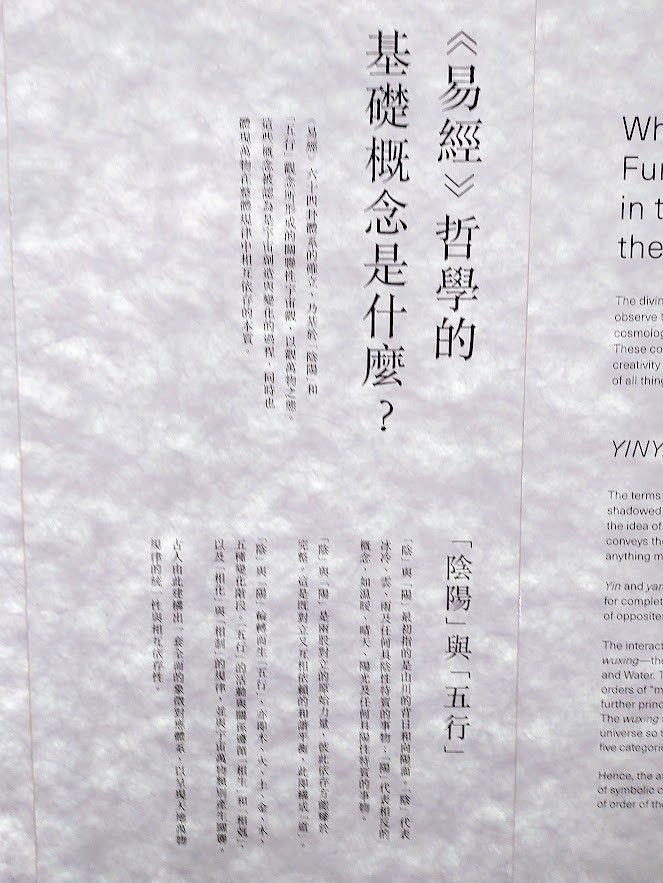 《易經》哲學的
基礎概念是什麼？
《易經》六十四卦體系的確立，乃基於「陰陽」和
「五行」觀念所形成的關聯性宇宙觀，以觀萬物之態。
這些概念被認為是宇宙創造與變化的過程，同時也
體現萬物在整體規律中相互依存的本質。
「陰陽」與「五行」
「陰」與「陽」最初指的是山川的背日和向陽面。「陰」代表
冰冷、雲、雨及任何具陰性特質的事物；「陽」代表相反的
概念，如溫暖、晴天、陽光及任何具陽性特質的事物。
「陰」與「陽」是兩股對立的原始力量，彼此依存方能臻於
完整，這是既對立又互相依賴的和諧平衡，此即構成「道」。
「陰」與「陽」輪轉而生「五行」，亦即木、火、土、金、水，
五種變化階段。「五行」的活動與關係遵循「相生」和「相剋」
以及「相化」與「相制」的規律，並與宇宙萬物類別產生關聯。
古人由此建構出一套全面的象徵對應體系，以呈現天地萬物
規律的統一性與相互依存性。
Wh
Fu
in t
the
The divin
observe t
cosmolog
These co
creativity
of all thing
YINY
The terms
shadowed
the idea of
conveys the
anything m
Yin and yan
for complet
of opposites
The interact
wuxing—the
and Water. T
orders of "m
further princ
The wuxing
universe so t
five categorie
Hence, the a
of symbolic c
of order of the